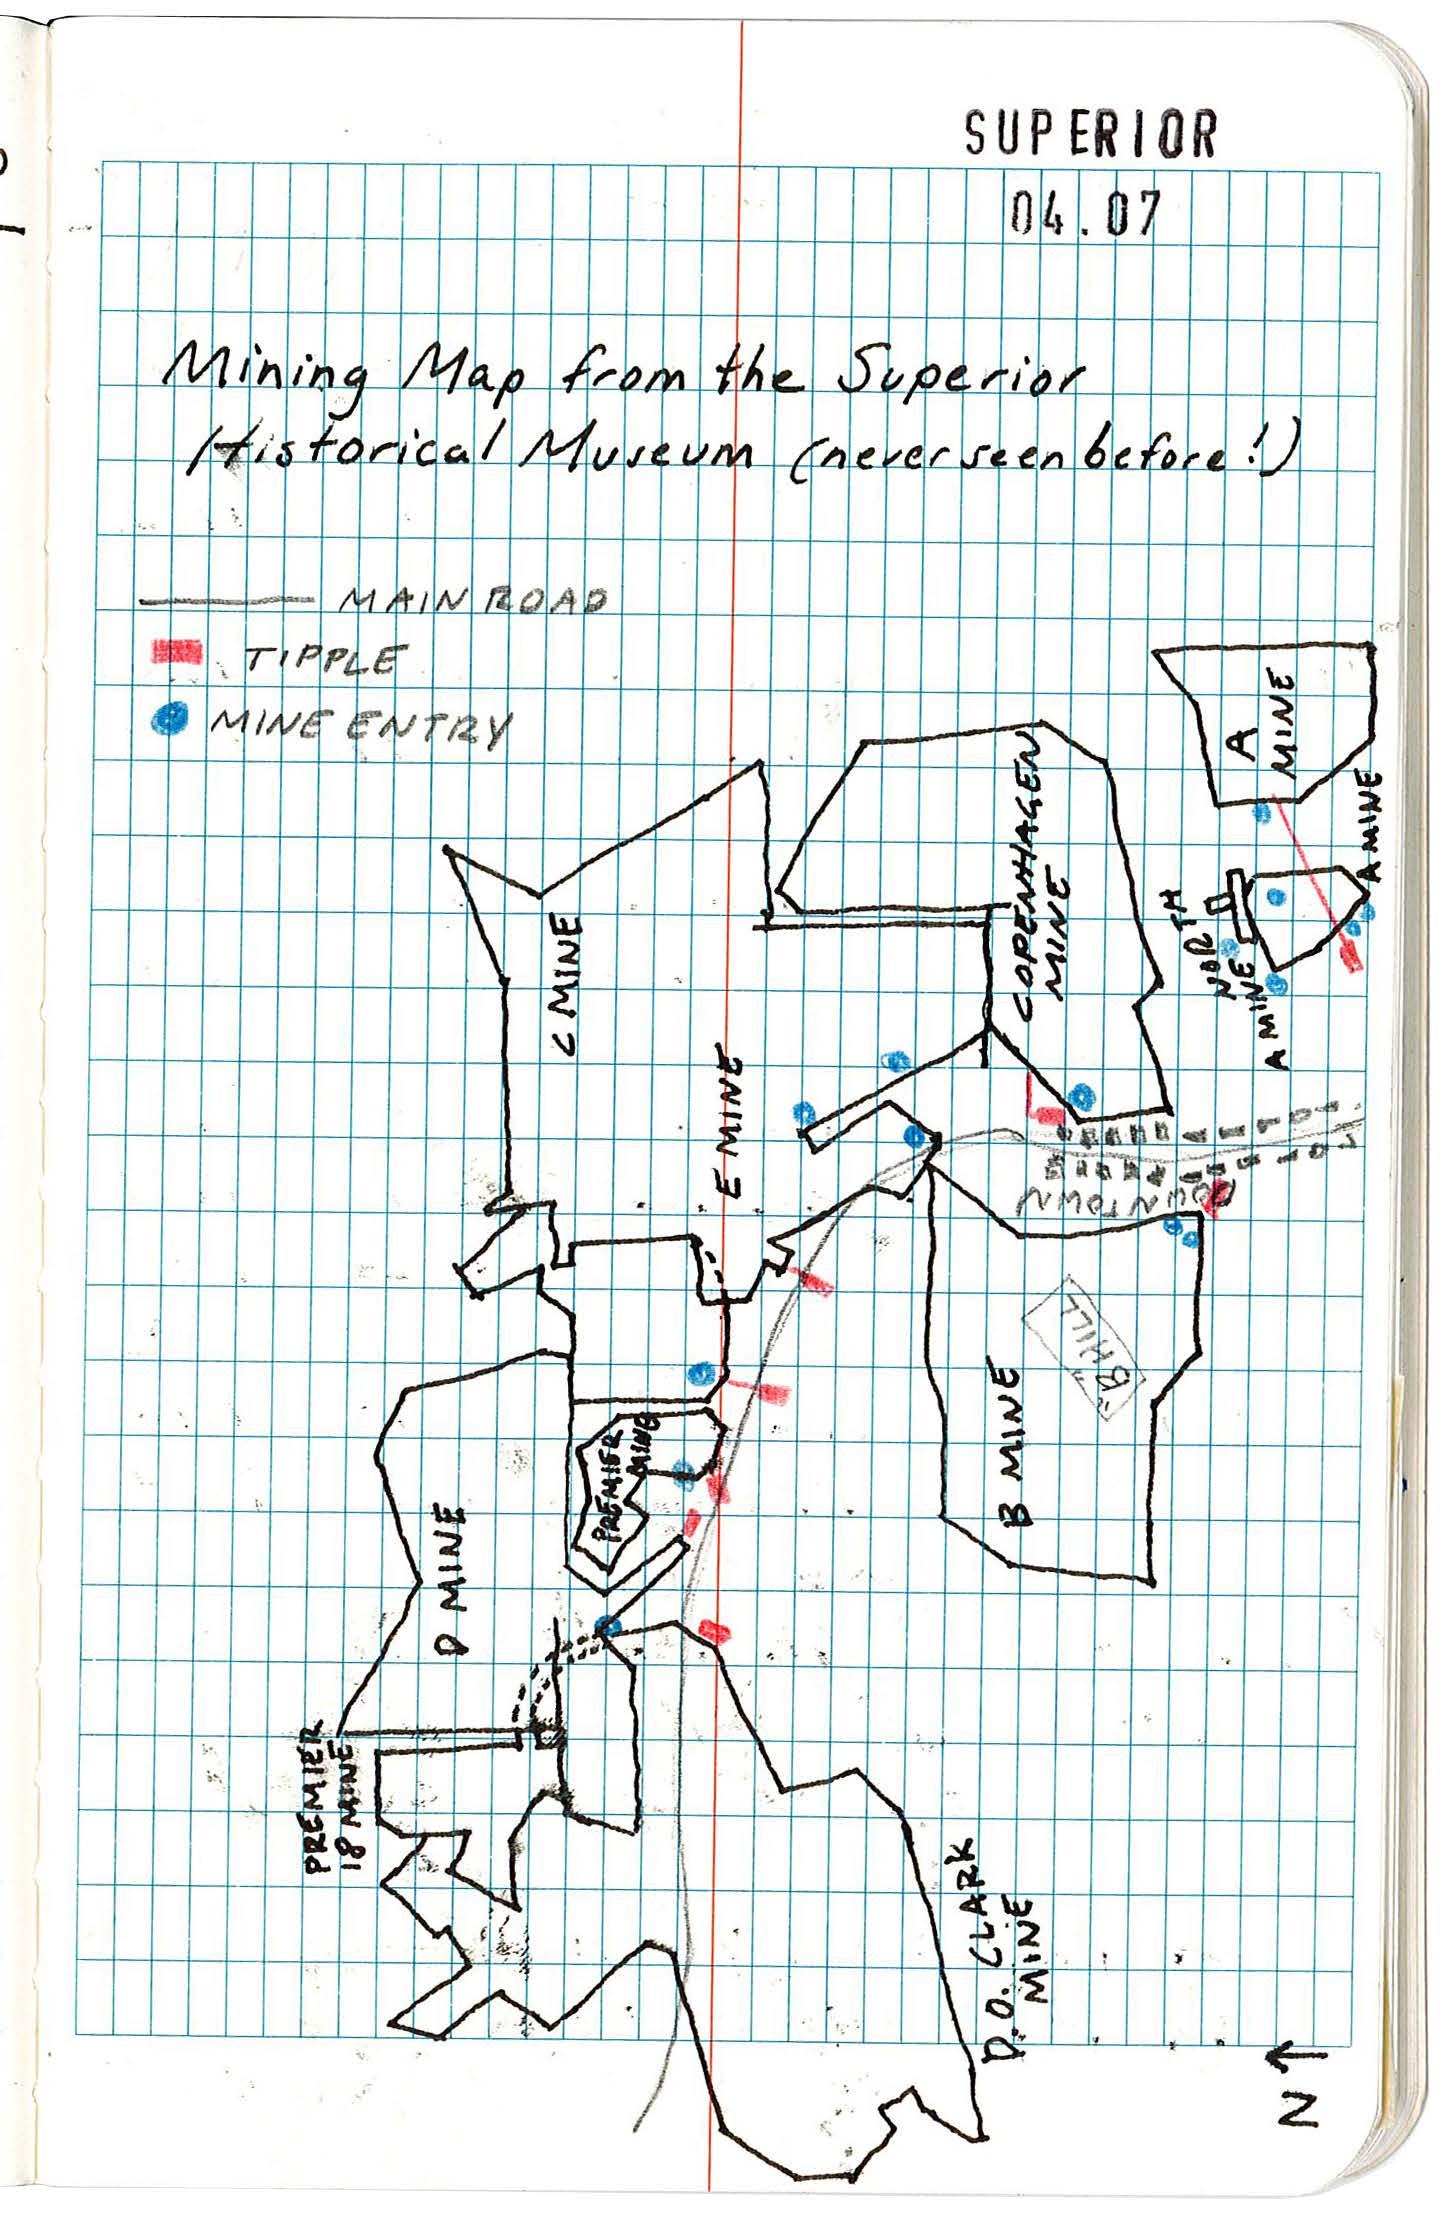 SUPERIOR
04.07
Mining Map from the Superior
Historical Museum (never seen before!)
MAIN ROAD
TIPPLE
MINE ENTRY
A
MINE
A MINE
NORTH
A MINE
COPENHAGEN
MINE
C MINE
E MINE
DOWNTOWN
"B HILL"
B MINE
PREMIER
MINE
D MINE
PREMIER
18 MINE
D.O. CLARK
MINE
N